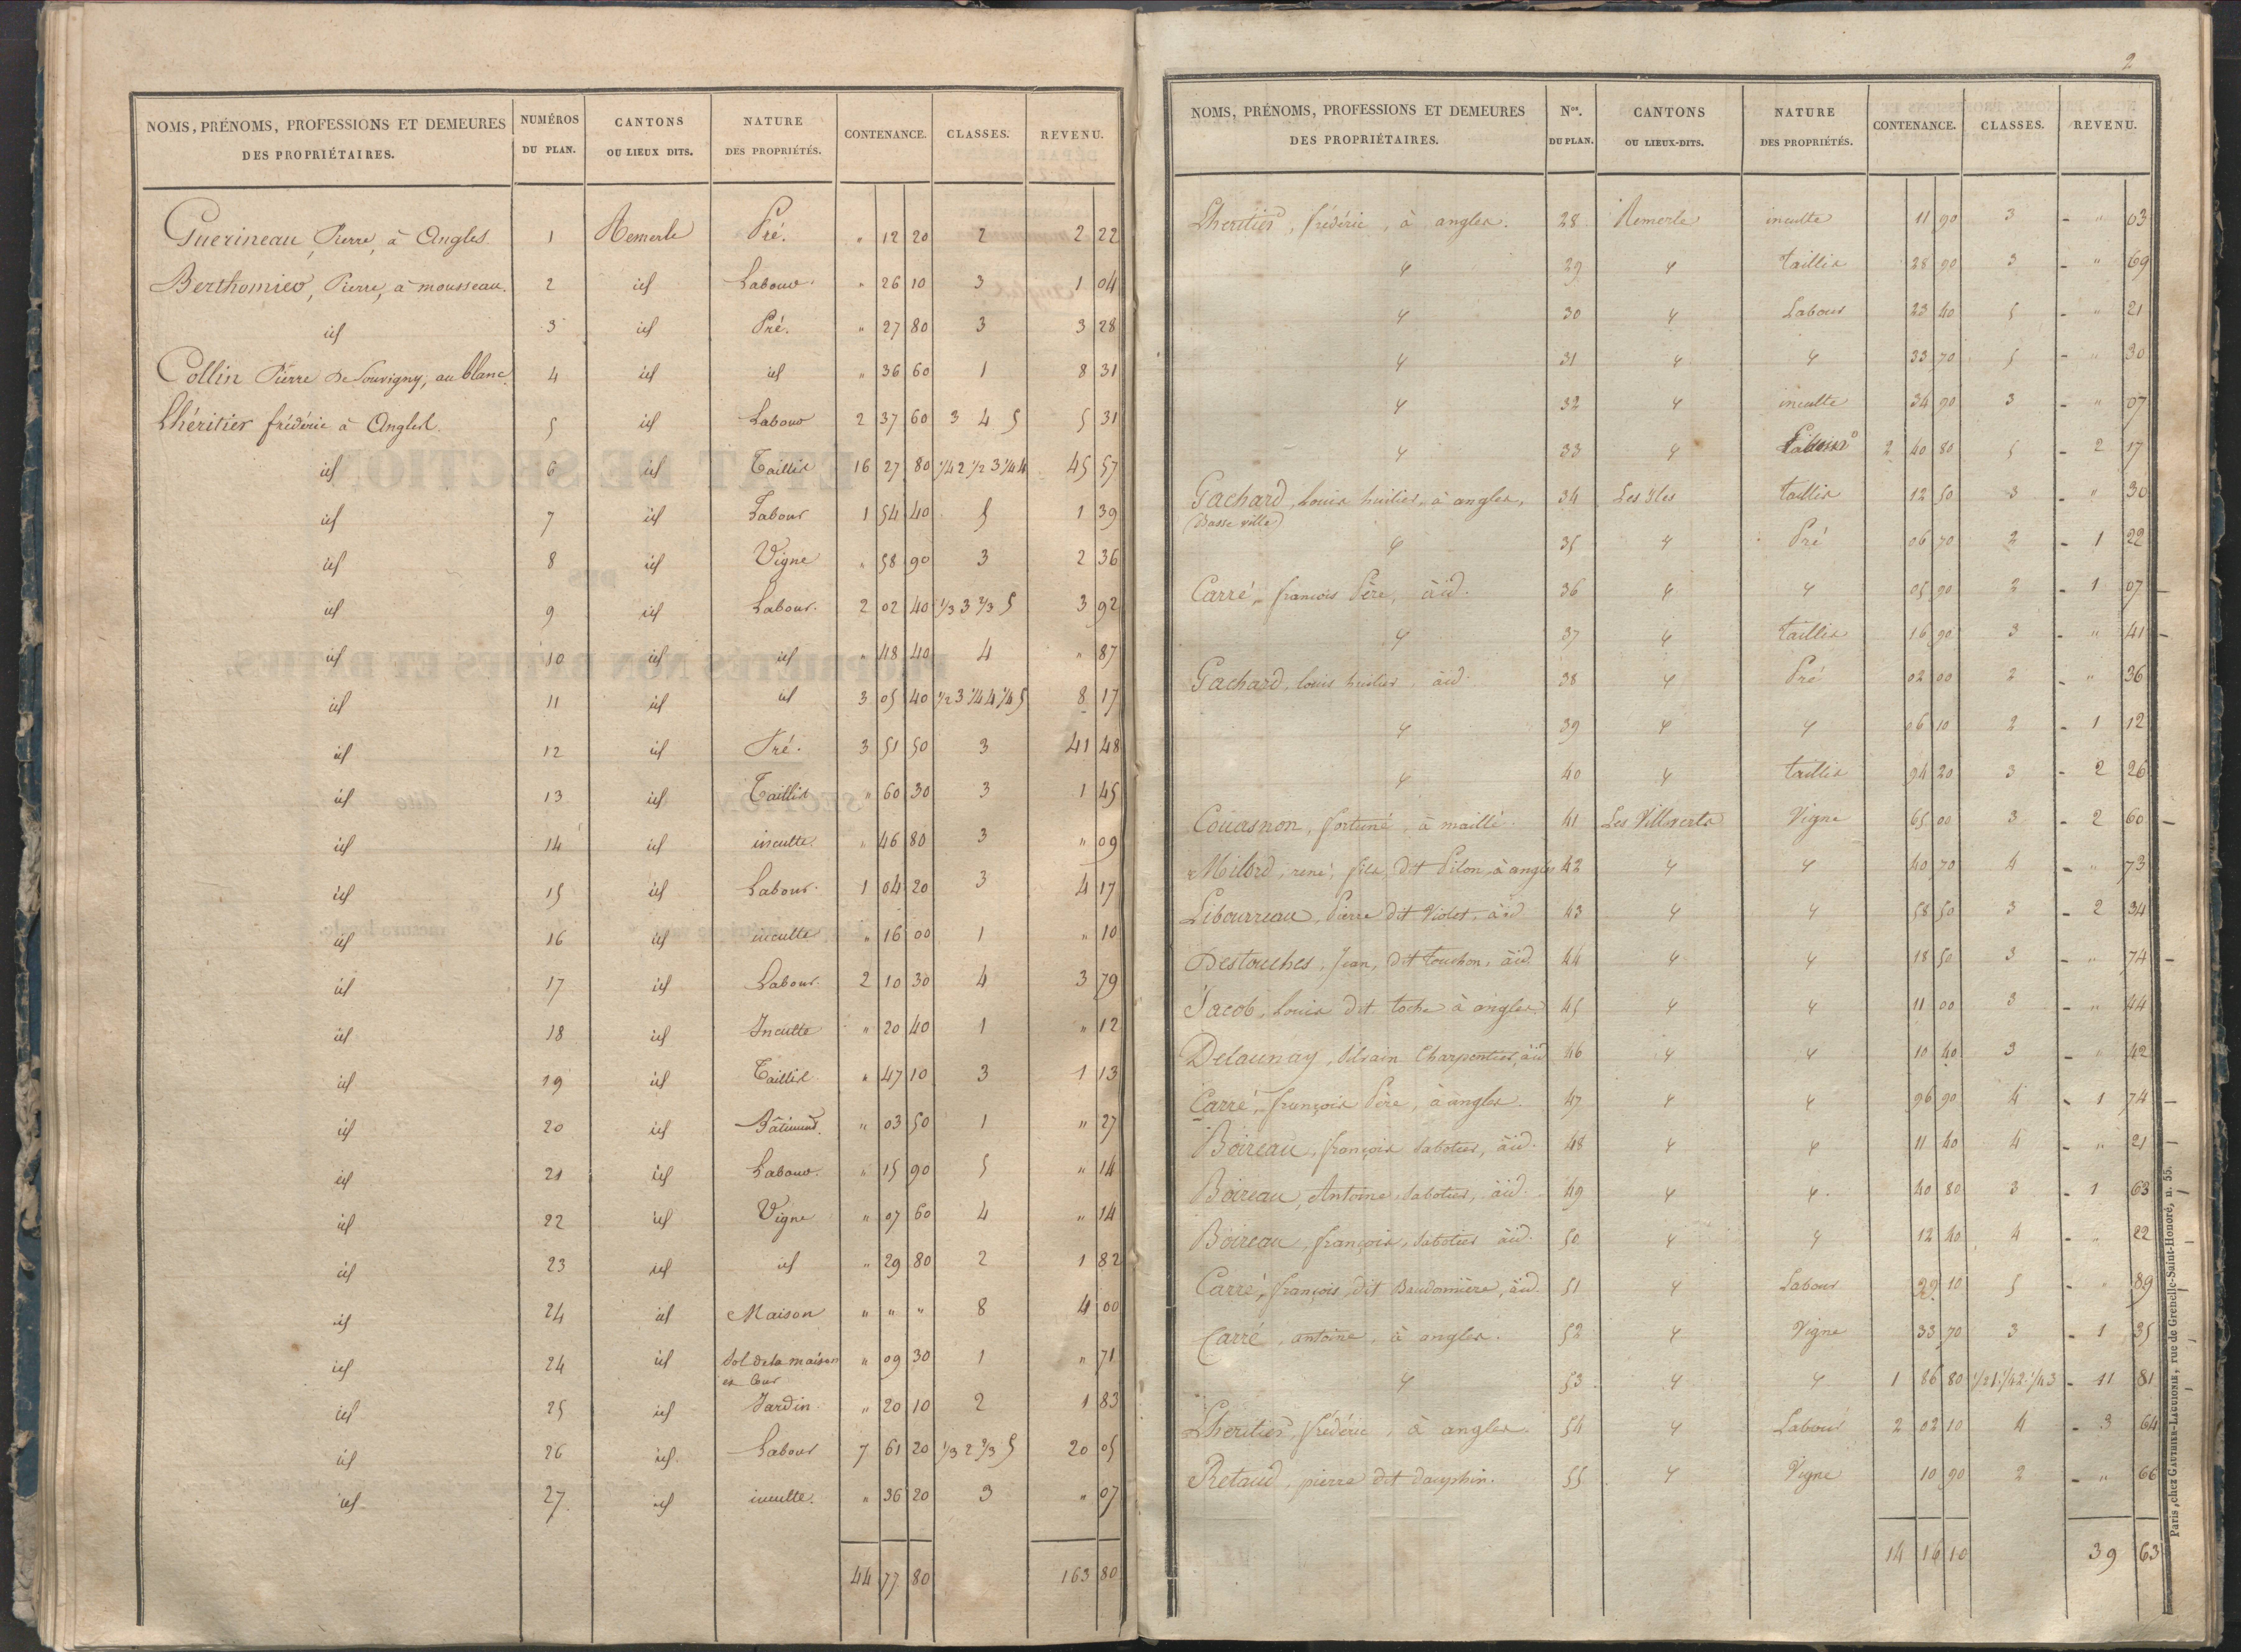 NOMS, PRÉNOMS, PROFESSIONS ET DEMEURES DES PROPRIÉTAIRES. NUMÉROS DU PLAN. CANTONS OU LIEUX DITS. NATURE DES PROPRIÉTÉS. CONTENANCE. CLASSES. REVENU.
Guerineau, Pierre, à Angles 1 Remerle Pré. " 12 20 2 2 22
Berthomier, Pierre, à mousseau. 2 id Labour. " 26 10 3 1 04
id 3 id Pré. " 27 80 3 3 28
Collin Pierre de Souvigny, au blanc. 4 id id " 36 60 1 8 31
Lhéritier frédéric à Angles. 5 id Labour 2 37 60 3 4 5 5 31
id 6 id Taillis 16 27 80 1/4 2 1/2 3 1/4 4 45 57
id 7 id Labour 1 54 40 5 1 39
id 8 id Vigne " 58 90 3 2 36
id 9 id Labour. 2 02 40 1/3 3 2/3 5 3 92
id 10 id id " 48 40 4 " 87
id 11 id id 3 05 40 1/2 3 1/4 4 1/4 5 8 17
id 12 id Pré. 3 51 50 3 41 48
id 13 id Taillis " 60 30 3 1 45
id 14 id inculte " 46 80 3 " 09
id 15 id Labour. 1 04 20 3 4 17
id 16 id inculte " 16 00 1 " 10
id 17 id Labour. 2 10 30 4 3 79
id 18 id Inculte " 20 40 1 " 12
id 19 id Taillis " 47 10 3 1 13
id 20 id Bâtiment. " 03 50 1 " 27
id 21 id Labour. " 15 90 5 " 14
id 22 id Vigne " 07 60 4 " 14
id 23 id id " 29 80 2 1 82
id 24 id Maison " " " 8 4 00
id 24 id Sol de la maison " 09 30 1 " 71
et Cour
id 25 id Jardin. " 20 10 2 1 83
id 26 id. Labour 7 61 20 1/3 2 2/3 5 20 05
id 27. id inculte. " 36 20 3 " 07
44 77 80 163 80
2
NOMS, PRÉNOMS, PROFESSIONS ET DEMEURES DES PROPRIÉTAIRES. Nos. DU PLAN. CANTONS OU LIEUX-DITS. NATURE DES PROPRIÉTÉS. CONTENANCE. CLASSES. REVENU.
Lheritier, frédéric, à angles. 28 Remerle inculte 11 90 3 - " 03
" 29 " taillis 28 90 3 - " 69
" 30 " Labour 23 40 5 - " 21
" 31 " " 33 70 5 - " 30
" 32 " inculte 34 90 3 - " 07
" 33 " Labour 2 40 80 5 - 2 17
Gachard, louis huilier, à angles, 34 Les Iles taillis 12 50 3 - " 30
(Basse ville)
" 35 " Pré 06 70 2 - 1 22
Carré, francois Père, à id. 36 " " 05 90 2 - 1 07 -
" 37 " taillis 16 90 3 - " 41 -
Gachard, louis huilier, à id. 38 " Pré 02 00 2 - " 36
" 39 " " 06 10 2 - 1 12
" 40 " taillis 94 20 3 - 2 26
Couasnon, fortuné, à maillé. 41 Les Villverts Vigne 65 00 3 - 2 60 -
Milord, rené, fils, dit Pilon, à angles 42 " " 40 70 4 - " 73
Libourreau, Pierre dit Violet, à id 43 " " 58 50 3 - 2 34
Destouches, Jean, dit touchon, à id. 44 " " 18 50 3 - " 74 -
Jacob, louis dit toche à angles 45 " " 11 00 3 - " 44
Delaunay, Silvain Charpentier, à id 46 " " 10 40 3 - " 42
Carré, françois Père, à angles. 47 " " 96 90 4 - 1 74 -
Boireau, françois Sabotier, à id. 48 " " 11 40 4 - " 21 -
Boireau, Antoine, Sabotier, à id. 49 " " 40 80 3 - 1 63 -
Boireau, françois, Sabotier à id. 50 " " 12 40 4 - " 22 -
Carré, françois, dit Baudonnière, à id. 51 " Labour 29 10 5 - " 89 -
Carré, antoine, à angles. 52 " Vigne 33 70 3 - 1 35 -
" 53 " " 1 86 80 1/2 1 1/4 2 1/4 3 - 11 81 -
Lheritier, frédéric, à angles. 54 " Labour 2 02 10 4 - 3 64
Retaud, pierre dit dauphin. 55 " Vigne 10 90 2 - " 66
14 16 10 39 63
Paris, chez GAUTHIER-LAGUIONIE, rue de Grenelle-Saint-Honoré, n. 55.